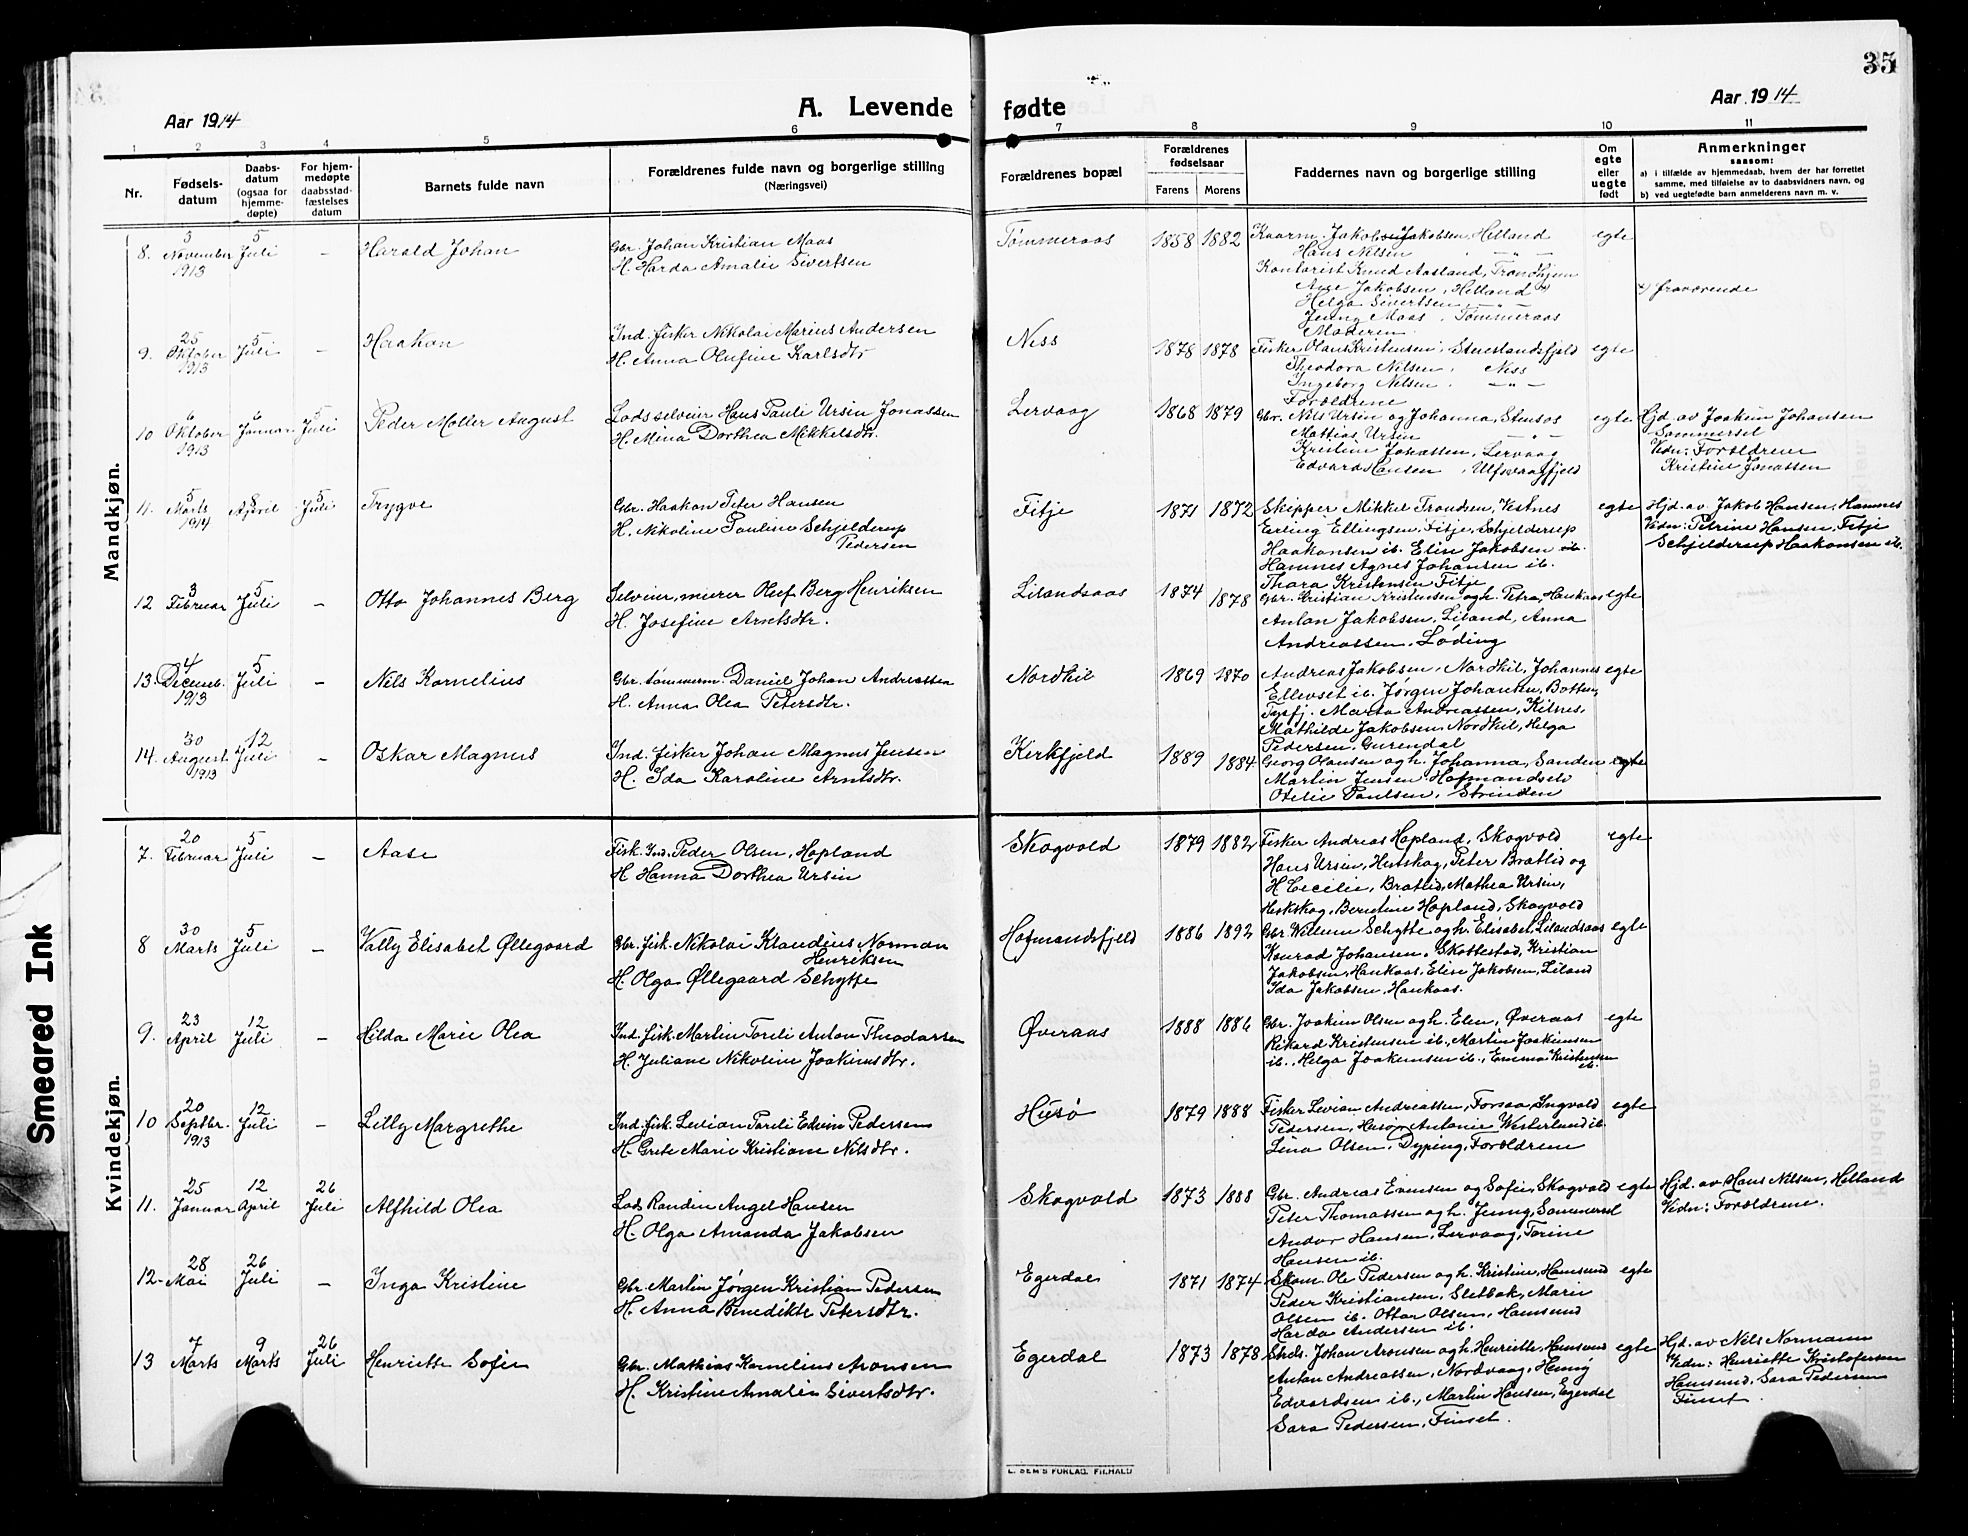 35
Aar 1914
A. Levende fødte
Aar 1914
1 2 3 4 5 6 7 8 9 10 11
Nr.
Fødsels-
datum
Daabs-
datum
(ogsaa for
hjemme-
døpte)
For hjem-
medøpte
daabsstad-
fæstelses
datum
Barnets fulde navn
Forældrenes fulde navn og borgerlige stilling
(Næringsvei)
Forældrenes bopæl
Forældrenes
fødselsaar
Farens Morens
Faddernes navn og borgerlige stilling
Om
egte
eller
uegte
født
Anmerkninger
saasom:
a) i tilfælde av hjemmedaab, hvem der har forrettet
samme, med tilføielse av to daabsvidners navn, og
b) ved uegtefødte barn anmelderens navn m. v.
Mandkjøn.
8. 3 November 1913 5 Juli – Harald Johan
Gbr. Johan Kristian Maas
H. Harda Amalie Sivertsen
Tømmeraas 1858 1882
Kaarm. Jakob Jakobsen, Helland egte
Hans Nilsen – " –
Kontorist Knud Aasland, Trondhjem
Aage Jakobsen, Helland x)
Helga Sivertsen – " –
Jenny Maas, Tømmeraas
Moderen.
x) fraværende
9. 25 Oktober 1913 5 Juli – Haakon
Ind. fisker Nikolai Marius Andersen
H. Anna Olufine Karlsdtr
Ness 1878 1878
Fisker Olaus Kristensen, Stenslandsfjeld egte
Theodora Nilsen, Ness
Ingeborg Nilsen, – " –
Forældrene
10 6 Oktober 1913 6 Januar 5 Juli Peder Møller August
Lods selveier Hans Pauli Ursin Jonassen
H. Mina Dorthea Mikkelsdtr.
Lervaag 1868 1879
Gbr. Nils Ursin og Johanna, Stensos egte
Mattias Ursin – " –
Kristine Jonassen, Lervaag
Edvard Hansen, Ulfsvaagfjeld
Hjd. av Joakim Johansen
Sommersel
Vidn: Forældrene
Kristine Jonassen
11. 5 Marts 1914 8 April 5 Juli Trygve
Gbr. Haakon Peter Hansen
H. Nikoline Pauline Schjelderup
Pedersen
Fitje 1871 1872
Skipper Mikker Trondsen, Vestnes egte
Erling Ellingsen, Fitje, Schjelderup
Haakonsen ib. Elise Jakobsen ib.
Hamnes Agnes Johansen ib.
Thora Kristensen Fitje
Hjd. av Jakob Hansen, Hamnes
Vidn: Petrine Hansen, Fitje
Schjelderup Haakonsen ib.
12 3 Februar 5 Juli – Otto Johannes Berg
Selveier, murer Oluf Berg Henriksen
H. Josefine Arntsdtr.
Lilandsaas 1874 1878
Gbr. Kristian Kristensen og h. Petra, Haukaas egte
Anton Jakobsen, Liland, Anna
Andreassen, Løding
13. 4 Decemb. 1913 5 Juli – Nils Kornelius
Gbr. tømmerm. Daniel Johan Andreassen
H. Anna Olea Petersdtr.
Nordkil 1869 1870
Andreas Jakobsen, Nordkil, Johannes egte
Ellevset ib. Jørgen Johansen, Botten,
Tysfj. Marta Andreassen, Kilnes,
Mathilde Jakobsen, Nordkil, Helga
Pedersen, Gurendal
14. 30 August 1913 12 Juli – Oskar Magnus
Ind. fisker Johan Magnus Jensen
H. Ida Karoline Arntsdtr.
Kirkfjeld 1889 1884
Georg Olausen og h. Johanna, Sanden egte
Martin Jensen, Hofmandselv
Otelie Paulsen, Strinden
Kvindekjøn.
7. 20 Februar 5 Juli – Aase
Fisk. Ind. Peder Olsen, Hopland
H. Hanna Dorthea Ursin
Skogvold 1879 1882
Fisker Andreas Hopland, Skogvold egte
Hans Ursin, Heskskog, Peter Bratlid og
H. Cecilie, Bratlid, Mathea Ursin,
Heskskog, Berntine Hopland, Skogvold
8 30 Marts 5 Juli – Vally Elisabet Øllegaard
Gbr. fisk. Nikolai Klaudius Norman
Henriksen
H. Olga Øllegaard Schytte
Hofmandsfjeld 1886 1892
Gbr. Willum Schytte og h. Elisabet, Lilandsaas egte
Konrad Johansen, Skottestad, Kristian
Jakobsen, Haukaas, Elise Jakobsen, Liland
Ida Jakobsen, Haukaas.
9. 23 April 12 Juli – Hilda Marie Olea
Ind. fisk. Martin Toreli Anton Theodorsen
H. Juliane Nikoline Joakimsdtr.
Øveraas 1888 1886
Gbr. Joakim Olsen og h. Elen, Øveraas egte
Rikard Kristensen ib., Martin Joakimsen
ib., Helga Joakimsen ib., Emma Kristensen
ib.
10 20 Septbr. 1913 12 Juli – Lilly Margrethe
Ind. fisk. Levian Toreli Edvin Pedersen
H. Grete Marie Kristiane Nilsdtr.
Husø 1879 1888
Fisker Levian Andreassen, Forsaa, Ingvald egte
Pedersen, Husø, Antonie Westerlund ib.
Lina Olsen, Dyping, Forældrene
11. 25 Januar 12 April 26 Juli Alfhild Olea
Lods Randin Angel Hansen
H. Olga Amanda Jakobsen
Skogvold 1873 1888
Gbr. Andreas Evensen og Sofie, Skogvold egte
Peter Thomassen og h. Jenny, Sommersel
Andor Hansen, Lervaag, Torine
Hansen ib.
Hjd. av Hans Nilsen, Helland
Vidn: Forældrene.
12. 28 Mai 26 Juli – Inga Kristine
Gbr. Martin Jørgen Kristian Pedersen
H. Anna Benedikte Petersdtr.
Egerdal 1871 1874
Skom. Ole Pedersen og h. Kristine, Hamsund egte
Peder Kristiansen, Sletbak, Marie
Olsen ib. Ottar Olsen, Hamsund
Harda Andersen ib.
13 7 Marts 9 Marts 26 Juli Henriette Sofie
Gbr. Mathias Kornelius Aronsen
H. Kristine Amalie Sivertsdtr.
Egerdal 1873 1878
Strds. Johan Aronsen og h. Henriette, Hamsund egte
Anton Andreassen, Nordvaag, Henny
Edvardsen ib., Martin Hansen, Egerdal
Sara Pedersen, Finset.
Hjd. av Nils Normann
Vidn: Henriette Kristofersen
Hamsund, Sara Pedersen
Finset.
E. SEM'S FORLAG, FR.HALD
Smeared Ink